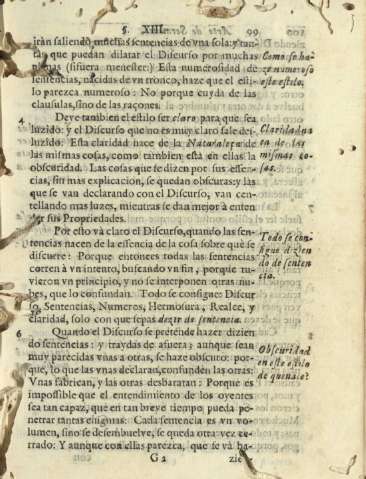 §. XIII. 99
iràn saliendo muchas sentencias de vna sola: y tan-
tas que puedan dilatar el Discurso por muchas
planas (si fuera menester) Esta numerosidad de
sentencias, nacidas de vn tronco, haze que el esti-
lo parezca numeroso: No porque cuyda de las
clausulas, sino de las raçones.
Como se ha-
ze numeroso
este estilo.
4 Deve tambien el estilo ser claro para que sea
luzido: y el Discurso que no es muy claro sale des-
luzido: Esta claridad nace de la Naturaleza de
las mismas cosas, como tambien està en ellas la
obscuridad. Las cosas que se dizen por sus essen-
cias, sin mas explicacion, se quedan obscuras: y las
que se van declarando con el Discurso, van cen-
tellando mas luzes, mientras se dan mejor à enten-
der sus Propriedades.
Claridad na
en de las
mismas co-
sas.
Por esto và claro el Discurso, quando las sen-
tencias nacen de la essencia de la cosa sobre què se
discurre: Porque entonces todas las sentencias
corren à vn intento, buscando vn fin, porque tu-
vieron vn principio, y no se interponen otras nu-
bes, que lo confundan. Todo se consigue: Discur
so, Sentencias, Numeros, Hermosura, Realce, y
claridad, solo con que sepas dezir de sentencia.
Todo se con-
sigue dizien
do de senten
cia.
6 Quando el Discurso se pretende hazer dizien
do sentencias: y traydas de afuera; aunque sean
muy parecidas vnas a otras, se haze obscuro: por-
que, lo que las vnas declaran, confunden las otras:
Vnas fabrican, y las otras desbaratan: Porque es
impossible que el entendimiento de los oyentes
sea tan capaz, que en tan breve tiempo pueda pe-
netrar tantas enigmas. Cada sentencia es vn vo-
lumen, sino se desembuelve, se queda otra vez ce-
rrado: Y aunque con ellas parezca, que se và ha-
Obscuridad
en este estilo
de
G 2 zie